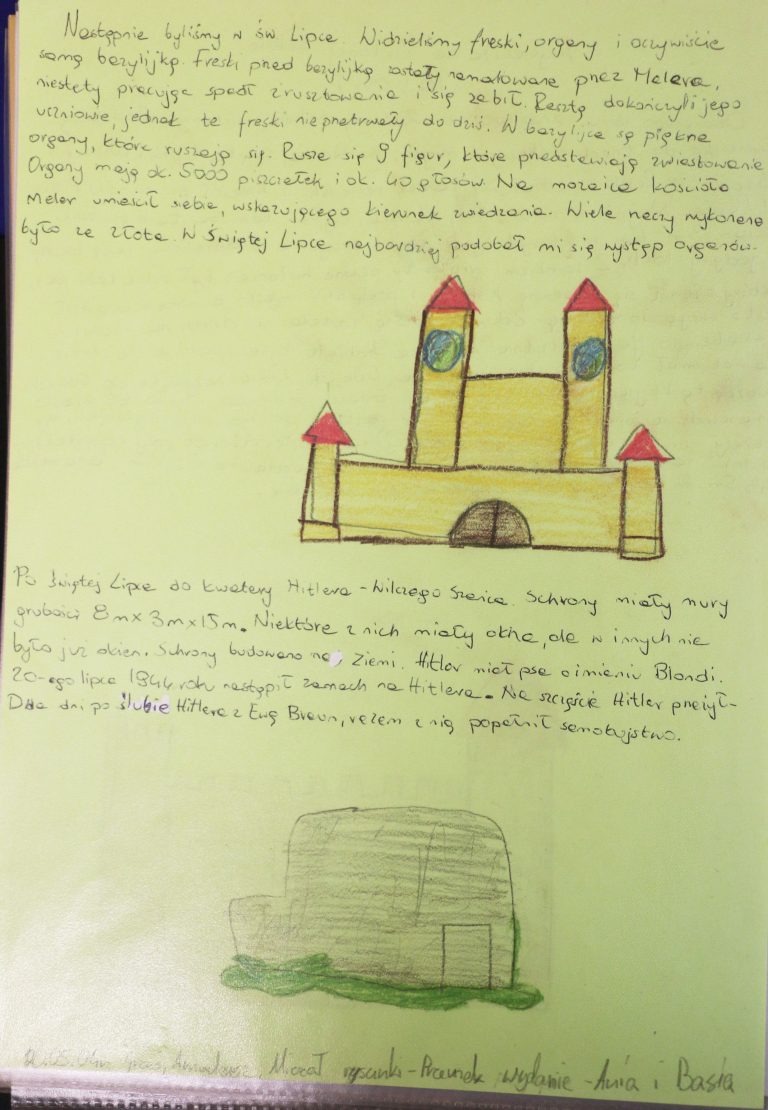 Następnie byliśmy w św Lipce. Widzieliśmy freski, organy i oczywiście
samą bazylijkę. Freski pred bazylijką zostały namalowane przez Melera,
niestety pracując spadł z rusztowania i się zabił. Resztę dokończyli jego
uczniowie, jednak te freski nie przetrwały do dziś. W bazylijce są piękne
organy, które ruszają się. Rusza się 9 figur, które przedstawiają zwiastowanie
Organy mają ok. 5000 piszczałek i ok. 40 głosów. Na mozaice kościoła
Meler umieścił siebie, wskazującego kierunek zwiedzania. Wiele rzeczy wykonane
było ze złota. W Świętej Lipce najbardziej podobał mi się występ organów.
Po Świętej Lipce do kwatery Hitlera - Wilczego Szańca. Schrony miały mury
grubości 8m x 3m x 15m. Niektóre z nich miały okna, ale w innych nie
było już okien. Schrony budowano na Ziemi. Hitler miał psa o imieniu Blondi.
20-ego lipca 1944 roku nastąpił zamach na Hitlera. Na szczęście Hitler przeżył.
Dwa dni po ślubie Hitlera z Ewą Braun, razem z nią popełnił samobójstwo.
Michał rysunki - Przemek wydanie - Ania i Basia